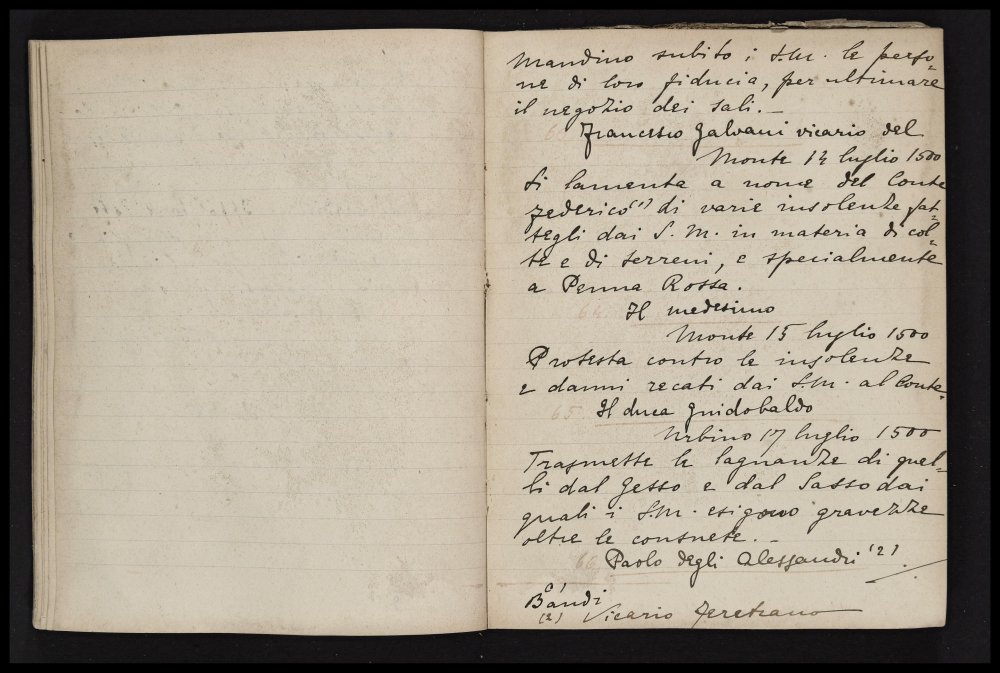 Mandino subito i S.M. le perso-
ne di loro fiducia, per ultimare
il negozio dei sali._
63. Francesco Galvani vicario del
Monte 14 luglio 1500
Si lamenta a nome del Conte
Federico (1) di varie insolenze fat-
tegli dai S.M. in materia di col-
te e di terreni, e specialmente
a Penna Rossa.
64. Il medesimo
Monte 15 luglio 1500
Protesta contro le insolenze
e danni recati dai S.M. al Conte.
65. Il duca Guidobaldo
Urbino 17 luglio 1500
Trasmette le lagnanze di quel-
li dal Gesso e dal Sasso dai
quali i S.M. esigono gravezze
oltre le consuete._
66. Paolo degli Alessandri (2)
(1) Bandi
(2) Vicario Feretrano